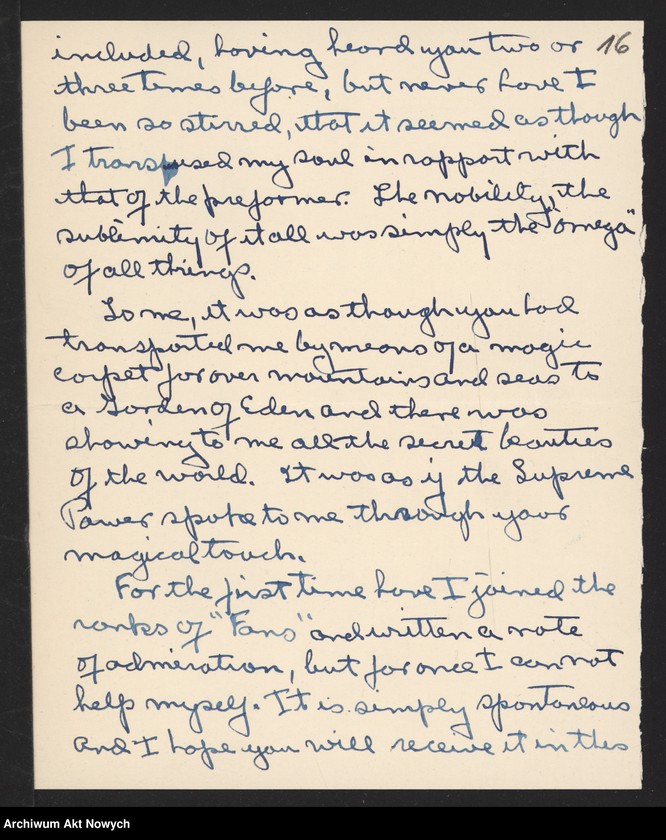 16
included, having heard you two or
three times before, but never have I
been so stirred, that it seemed as though
I transfused my soul in rapport with
that of the preformer. The nobility, the
sublimity of it all was simply the "omega"
of all things.
To me, it was as though you had
transported me by means of a magic
carpet far over mountains and seas to
a Garden of Eden and there was
showing to me all the secret beauties
of the world. It was as if the Supreme
Power spoke to me through your
magical touch.
For the first time have I joined the
ranks of "Fans" and written a note
of admiration, but for once I cannot
help myself. It is simply spontaneous
and I hope you will receive it in this
Archiwum Akt Nowych